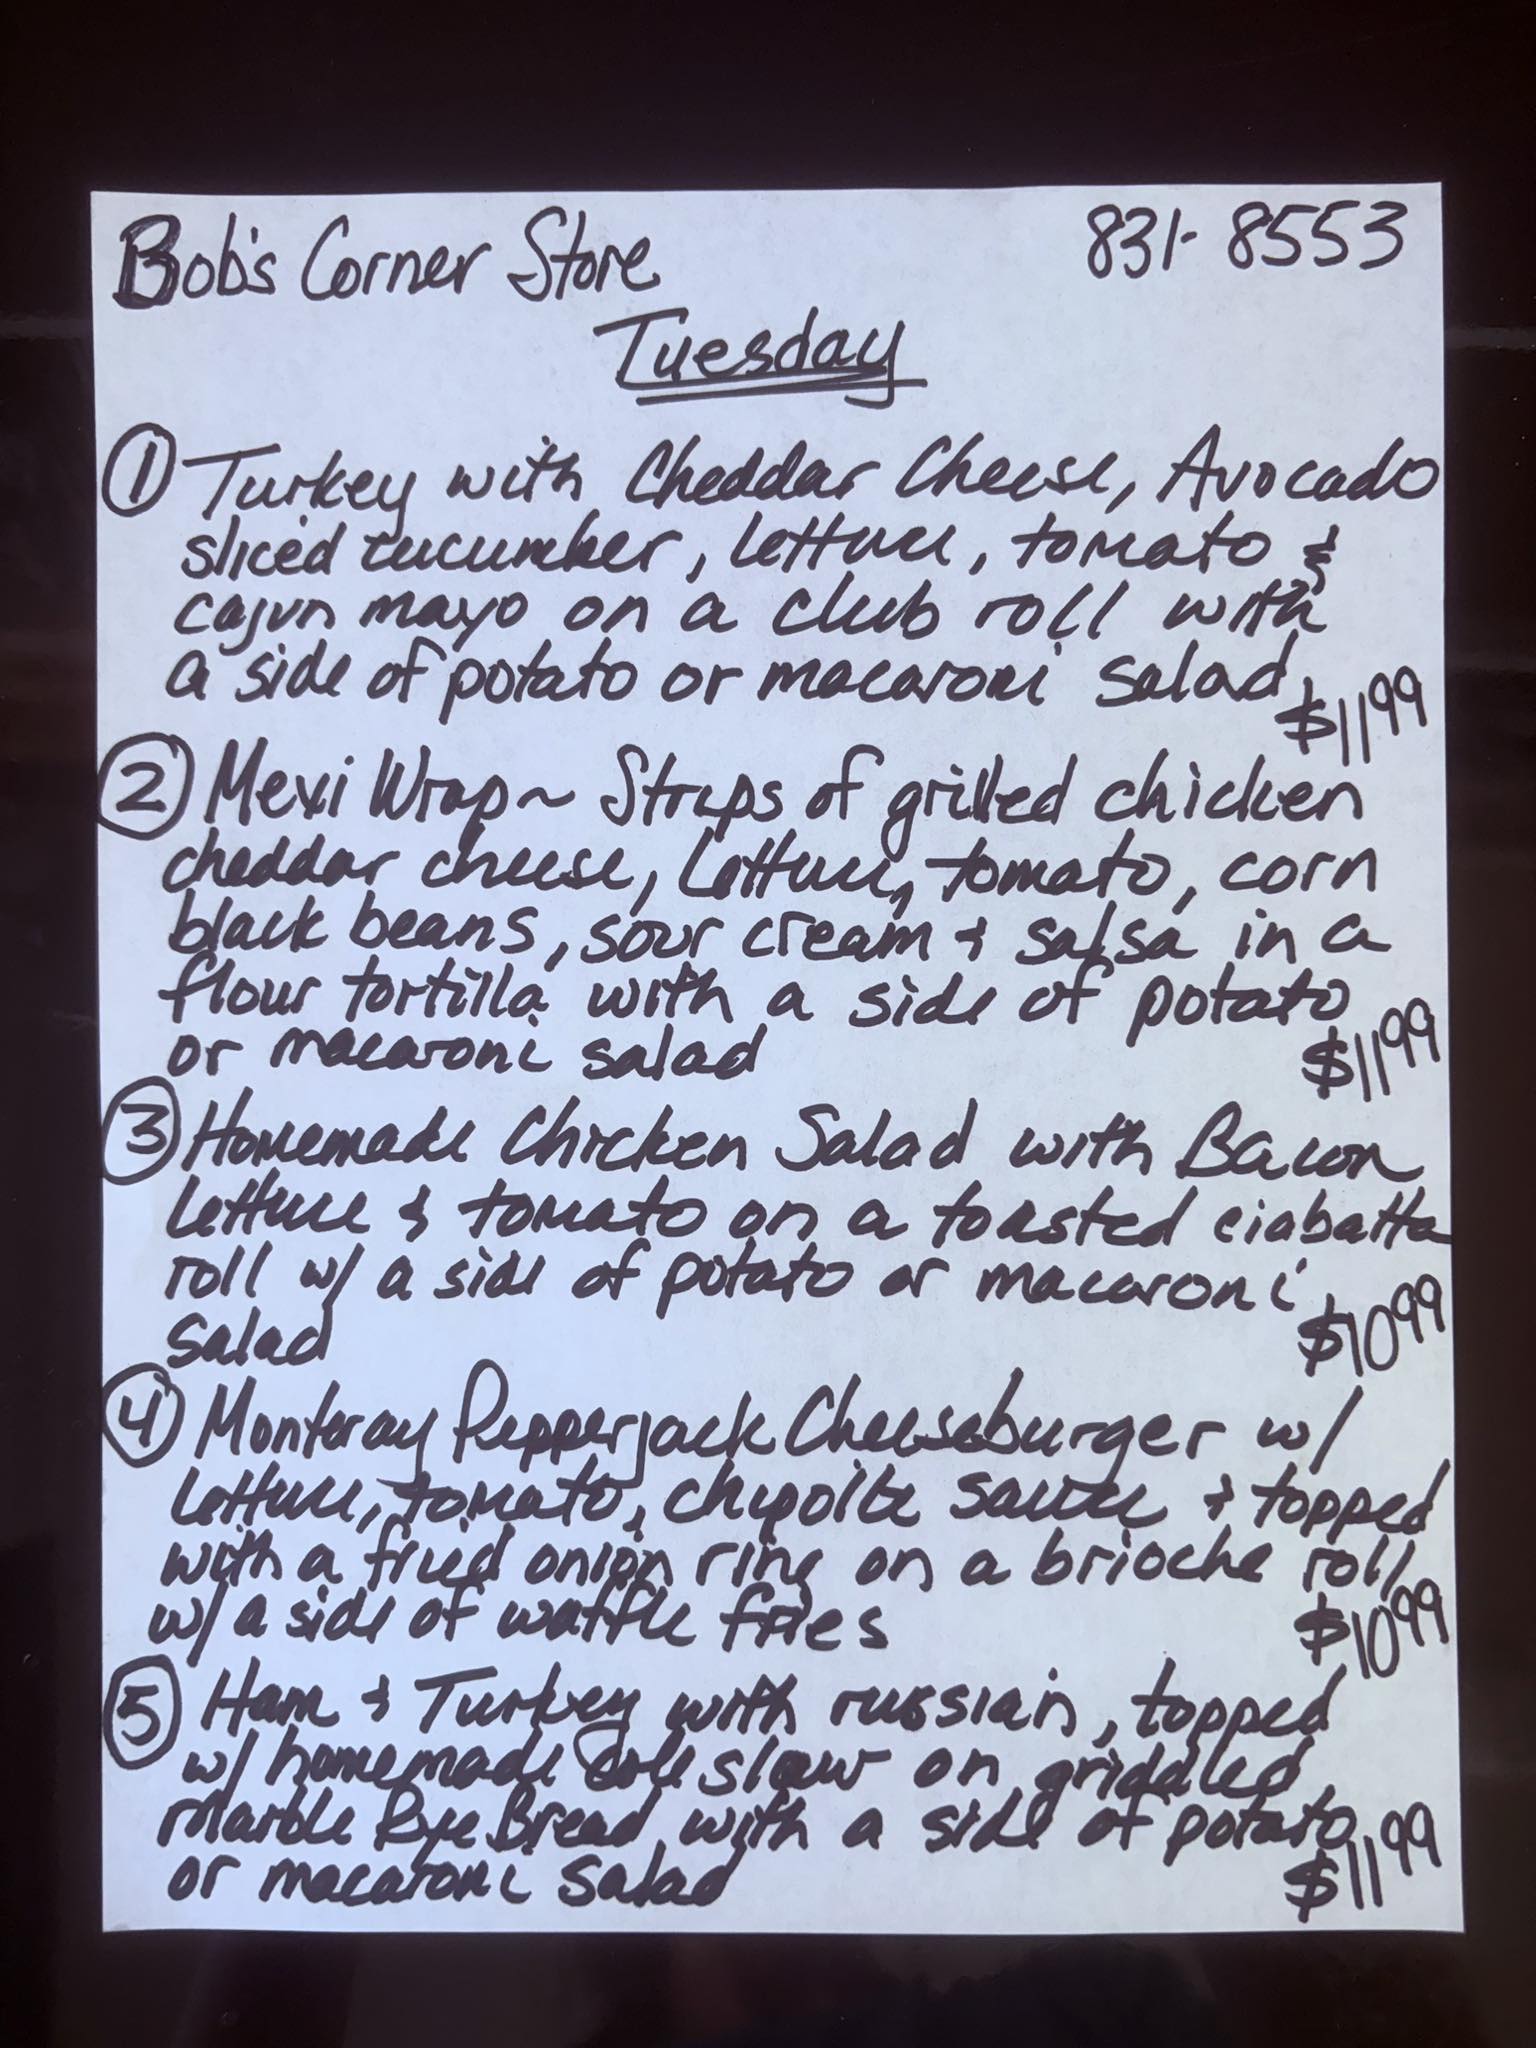 Bob's Corner Store 831-8553
Tuesday
① Turkey with Cheddar Cheese, Avocado
sliced cucumber, lettuce, tomato &
cajun mayo on a club roll with
a side of potato or macaroni salad
$11.99
② Mexi Wrap ~ Strips of grilled chicken
cheddar cheese, lettuce, tomato, corn
black beans, sour cream & salsa in a
flour tortilla with a side of potato
or macaroni salad $11.99
③ Homemade Chicken Salad with Bacon
lettuce & tomato on a toasted ciabatta
roll w/ a side of potato or macaroni
salad $10.99
④ Monteray Pepperjack Cheeseburger w/
lettuce, tomato, chipolte sauce & topped
with a fried onion ring on a brioche roll
w/ a side of waffle fries $10.99
⑤ Ham & Turkey with russian, topped
w/ homemade cole slaw on griddled
Marble Rye Bread with a side of potato
or macaroni salad $11.99